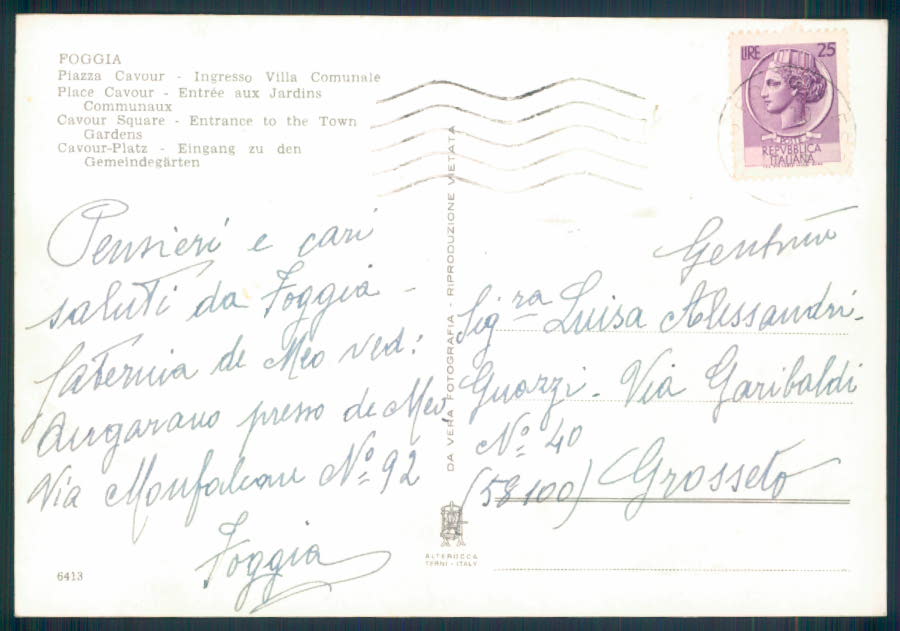 FOGGIA
Piazza Cavour - Ingresso Villa Comunale
Place Cavour - Entrée aux Jardins
Communaux
Cavour Square - Entrance to the Town
Gardens
Cavour-Platz - Eingang zu den
Gemeindegärten
LIRE 25
POSTE
REPVBBLICA
ITALIANA
Pensieri e cari
saluti da Foggia -
de Meo ved:
presso de Meo
Via N.º 92
Foggia
Sig.ra Luisa Alessandri-
Guazzi - Via Garibaldi
N.º 40
(58100) Grosseto
DA VERA FOTOGRAFIA - RIPRODUZIONE VIETATA
ALTEROCCA
TERNI - ITALY
6413